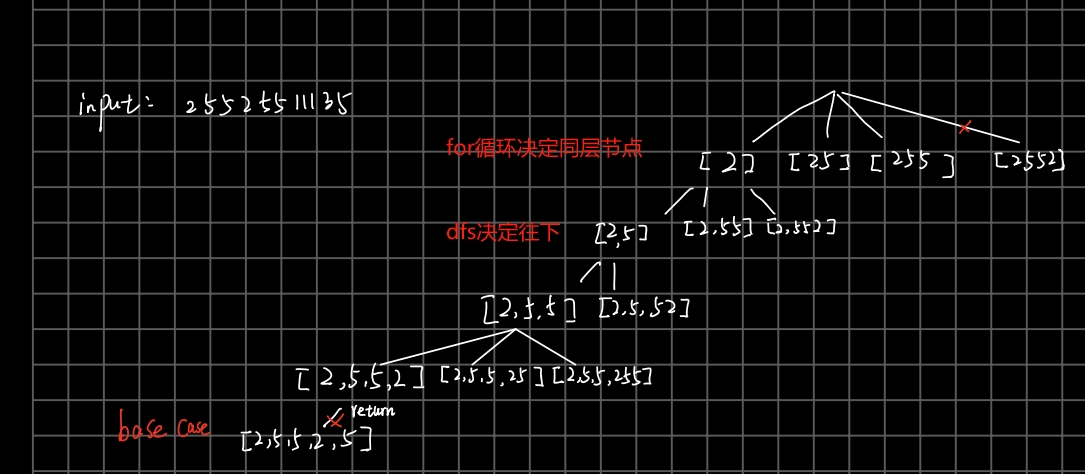 input: 255255111135
for循环决定同层节点
[2] [25] [255] [2552]
dfs决定往下
[2,5] [2,55] [2,552]
[2,5,5] [2,5,52]
[2,5,5,2] [2,5,5,25] [2,5,5,255]
return
base case
[2,5,5,2,5]